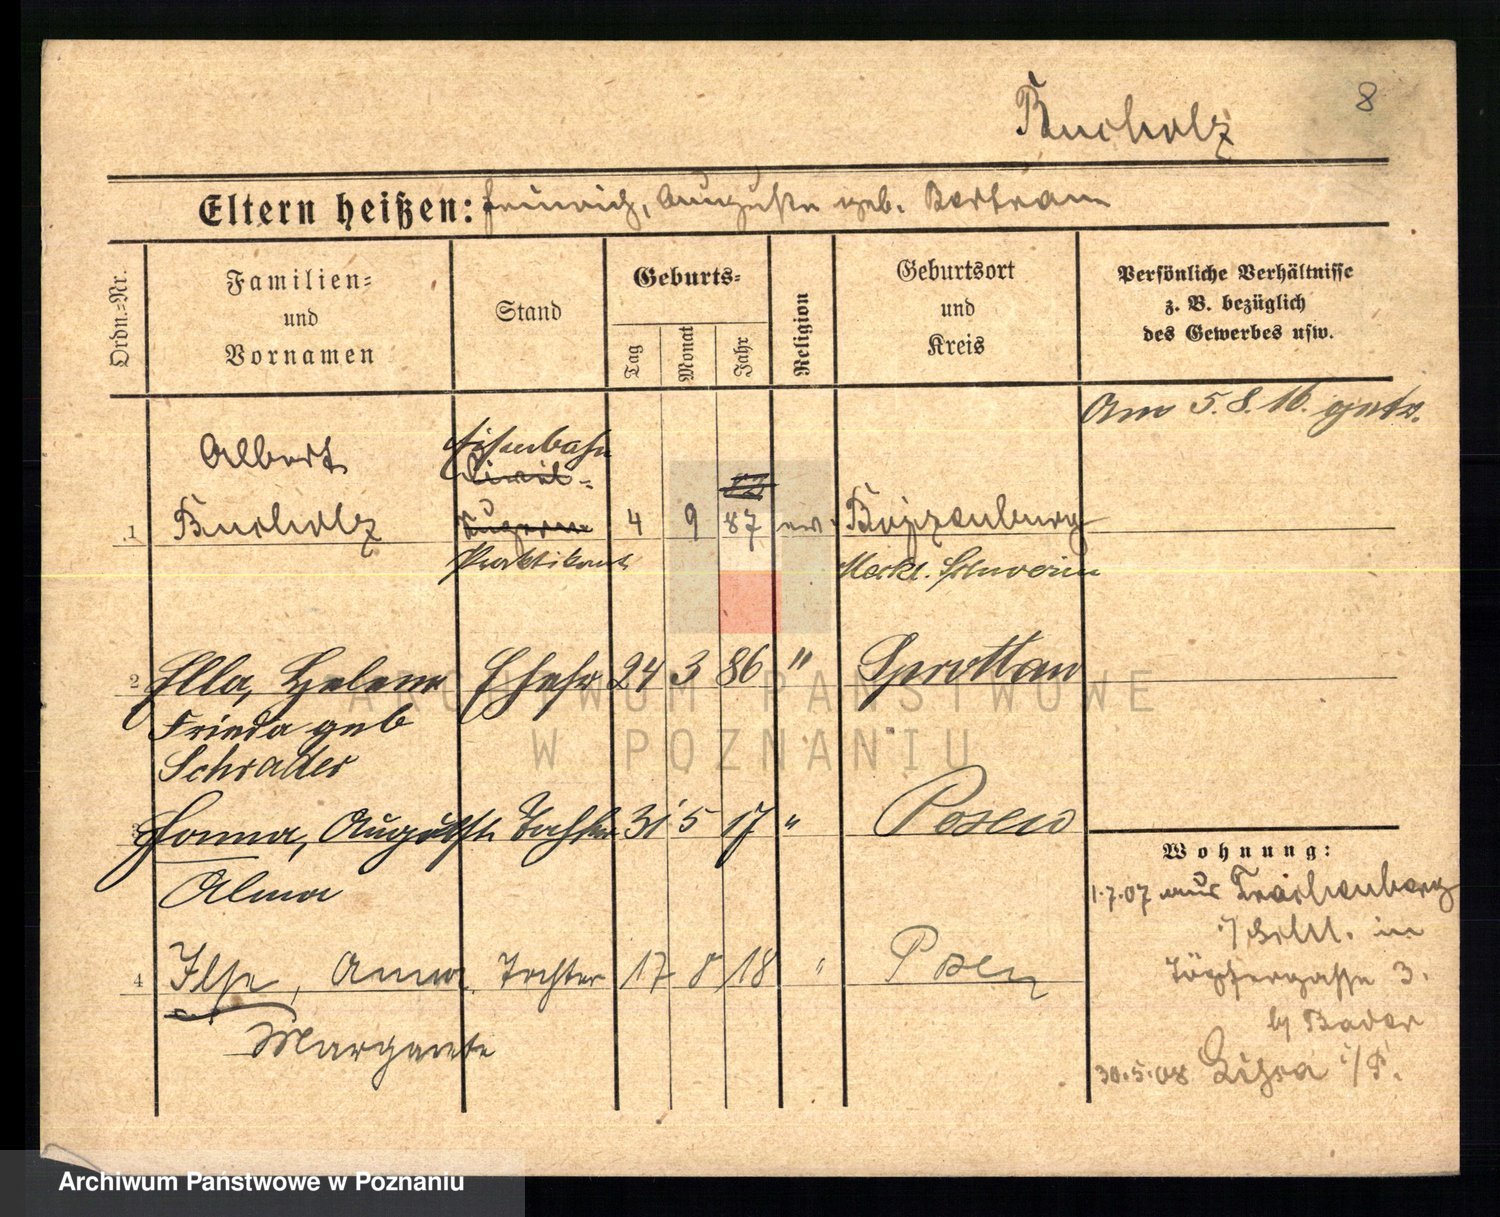 8
Bucholz
Eltern heißen: Heinrich, Auguste geb. Bertram
Ordn.=Nr.
Familien=
und
Vornamen
Stand
Geburts=
Tag
Monat
Jahr
Religion
Geburtsort
und
Kreis
Persönliche Verhältnisse
z. B. bezüglich
des Gewerbes usw.
Am 5.8.16. getr.
Albert
Eisenbahn
Civil-
1 Bucholz 4 9 87 ev. Boizenburg
Praktikant Meckl. Schwerin
2 Ella, Helene Ehefr 24 3 86 " Sprottau
Frieda geb
Schrader
3 Hanna, Auguste Tochter 31 5 17 " Posen
Alma
4 Ilse, Anna Tochter 17 8 18 " Posen
Margarete
Wohnung:
1.7.07 aus Trachenberg
i/Schl. in
Töpfergasse 3.
b/ Bader
30.5.08 Lissa i/P.
ARCHIWUM PAŃSTWOWE
W POZNANIU
Archiwum Państwowe w Poznaniu